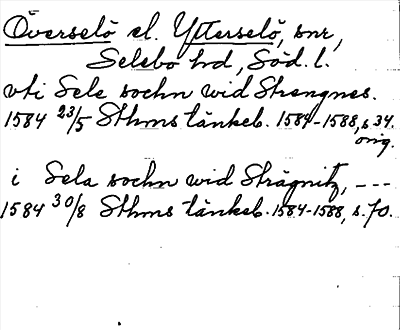 Överselö el. Ytterselö, snr,
Selebo hd, Söd. l.
vti Sele sochn wid Strengnes.
1584 23/5 Sthms tänkeb. 1584-1588, s. 34.
orig.
i Sela sochn wid Strägnitz, ---
1584 30/8 Sthms tänkeb. 1584-1588, s. 70.